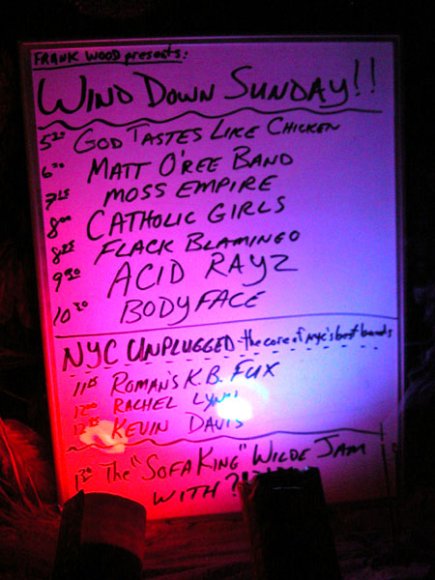 FRANK WOOD presents:
WIND DOWN SUNDAY!!
5 30 GOD TASTES LIKE CHICKEN
6 30 MATT O'REE BAND
7 15 MOSS EMPIRE
8 00 CATHOLIC GIRLS
8 45 FLACK BLAMINGO
9 30 ACID RAYZ
10 30 BODYFACE
NYC UNPLUGGED - the core of nyc's best bands
11 15 ROMAN'S K.B. FUX
12 00 RACHEL LYNN
KEVIN DAVIS
1 30 The "SOFA KING" WILDE JAM
WITH